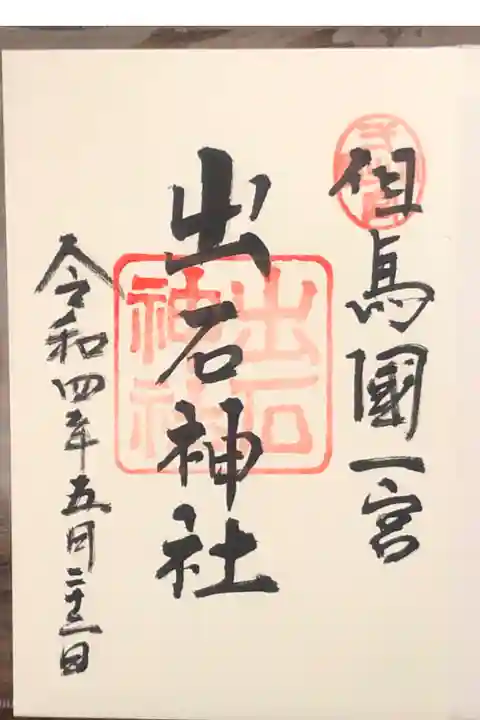 但馬國一宮
出石神社
出石神社
令和四年五月二十二日